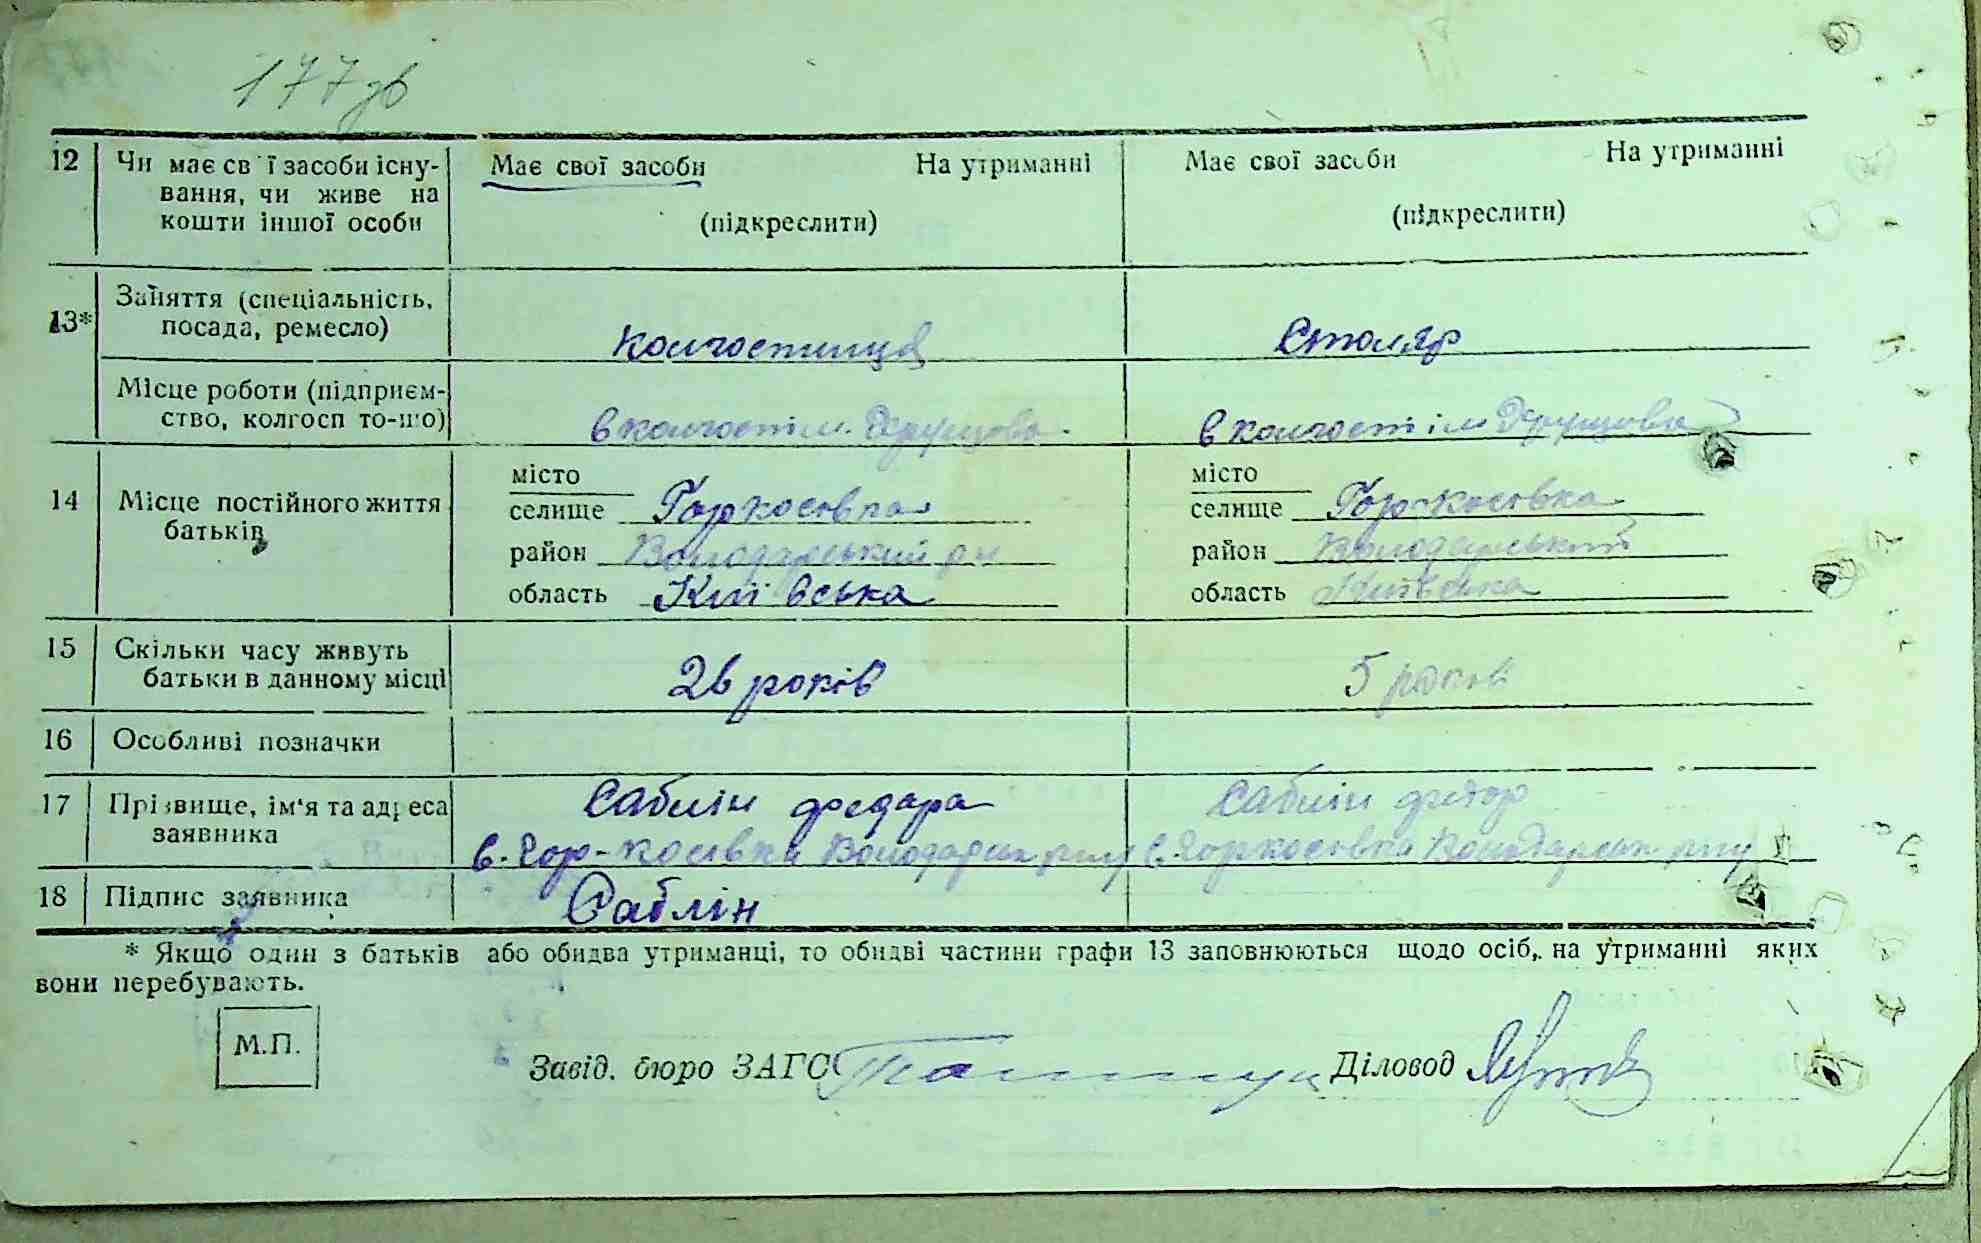 177зв
12 Чи має свої засоби існу- Має свої засоби На утриманні Має свої засоби На утриманні
вання, чи живе на
кошти іншої особи (підкреслити) (підкреслити)
13* Заняття (спеціальність,
посада, ремесло) колгоспниця Столяр
Місце роботи (підприєм-
ство, колгосп то-що) в колгоспі ім. Хрущова в колгоспі ім Хрущова
місто місто
14 Місце постійного життя селище Гор-косівка селище Гор-косівка
батьків район Володарський рн район Володарський
область Київська область Київська
15 Скільки часу живуть
батьки в данному місці 26 років 5 років
16 Особливі позначки
17 Прізвище, ім'я та адреса Саблін Федара Саблін Федор
заявника с. Гор-косівка Володарськ р-ну с. Горкосівка Володарськ р-ну
18 Підпис заявника Саблін
* Якщо один з батьків або обидва утриманці, то обидві частини графи 13 заповнюються щодо осіб, на утриманні яких
вони перебувають.
М.П.
Завід. бюро ЗАГС Діловод